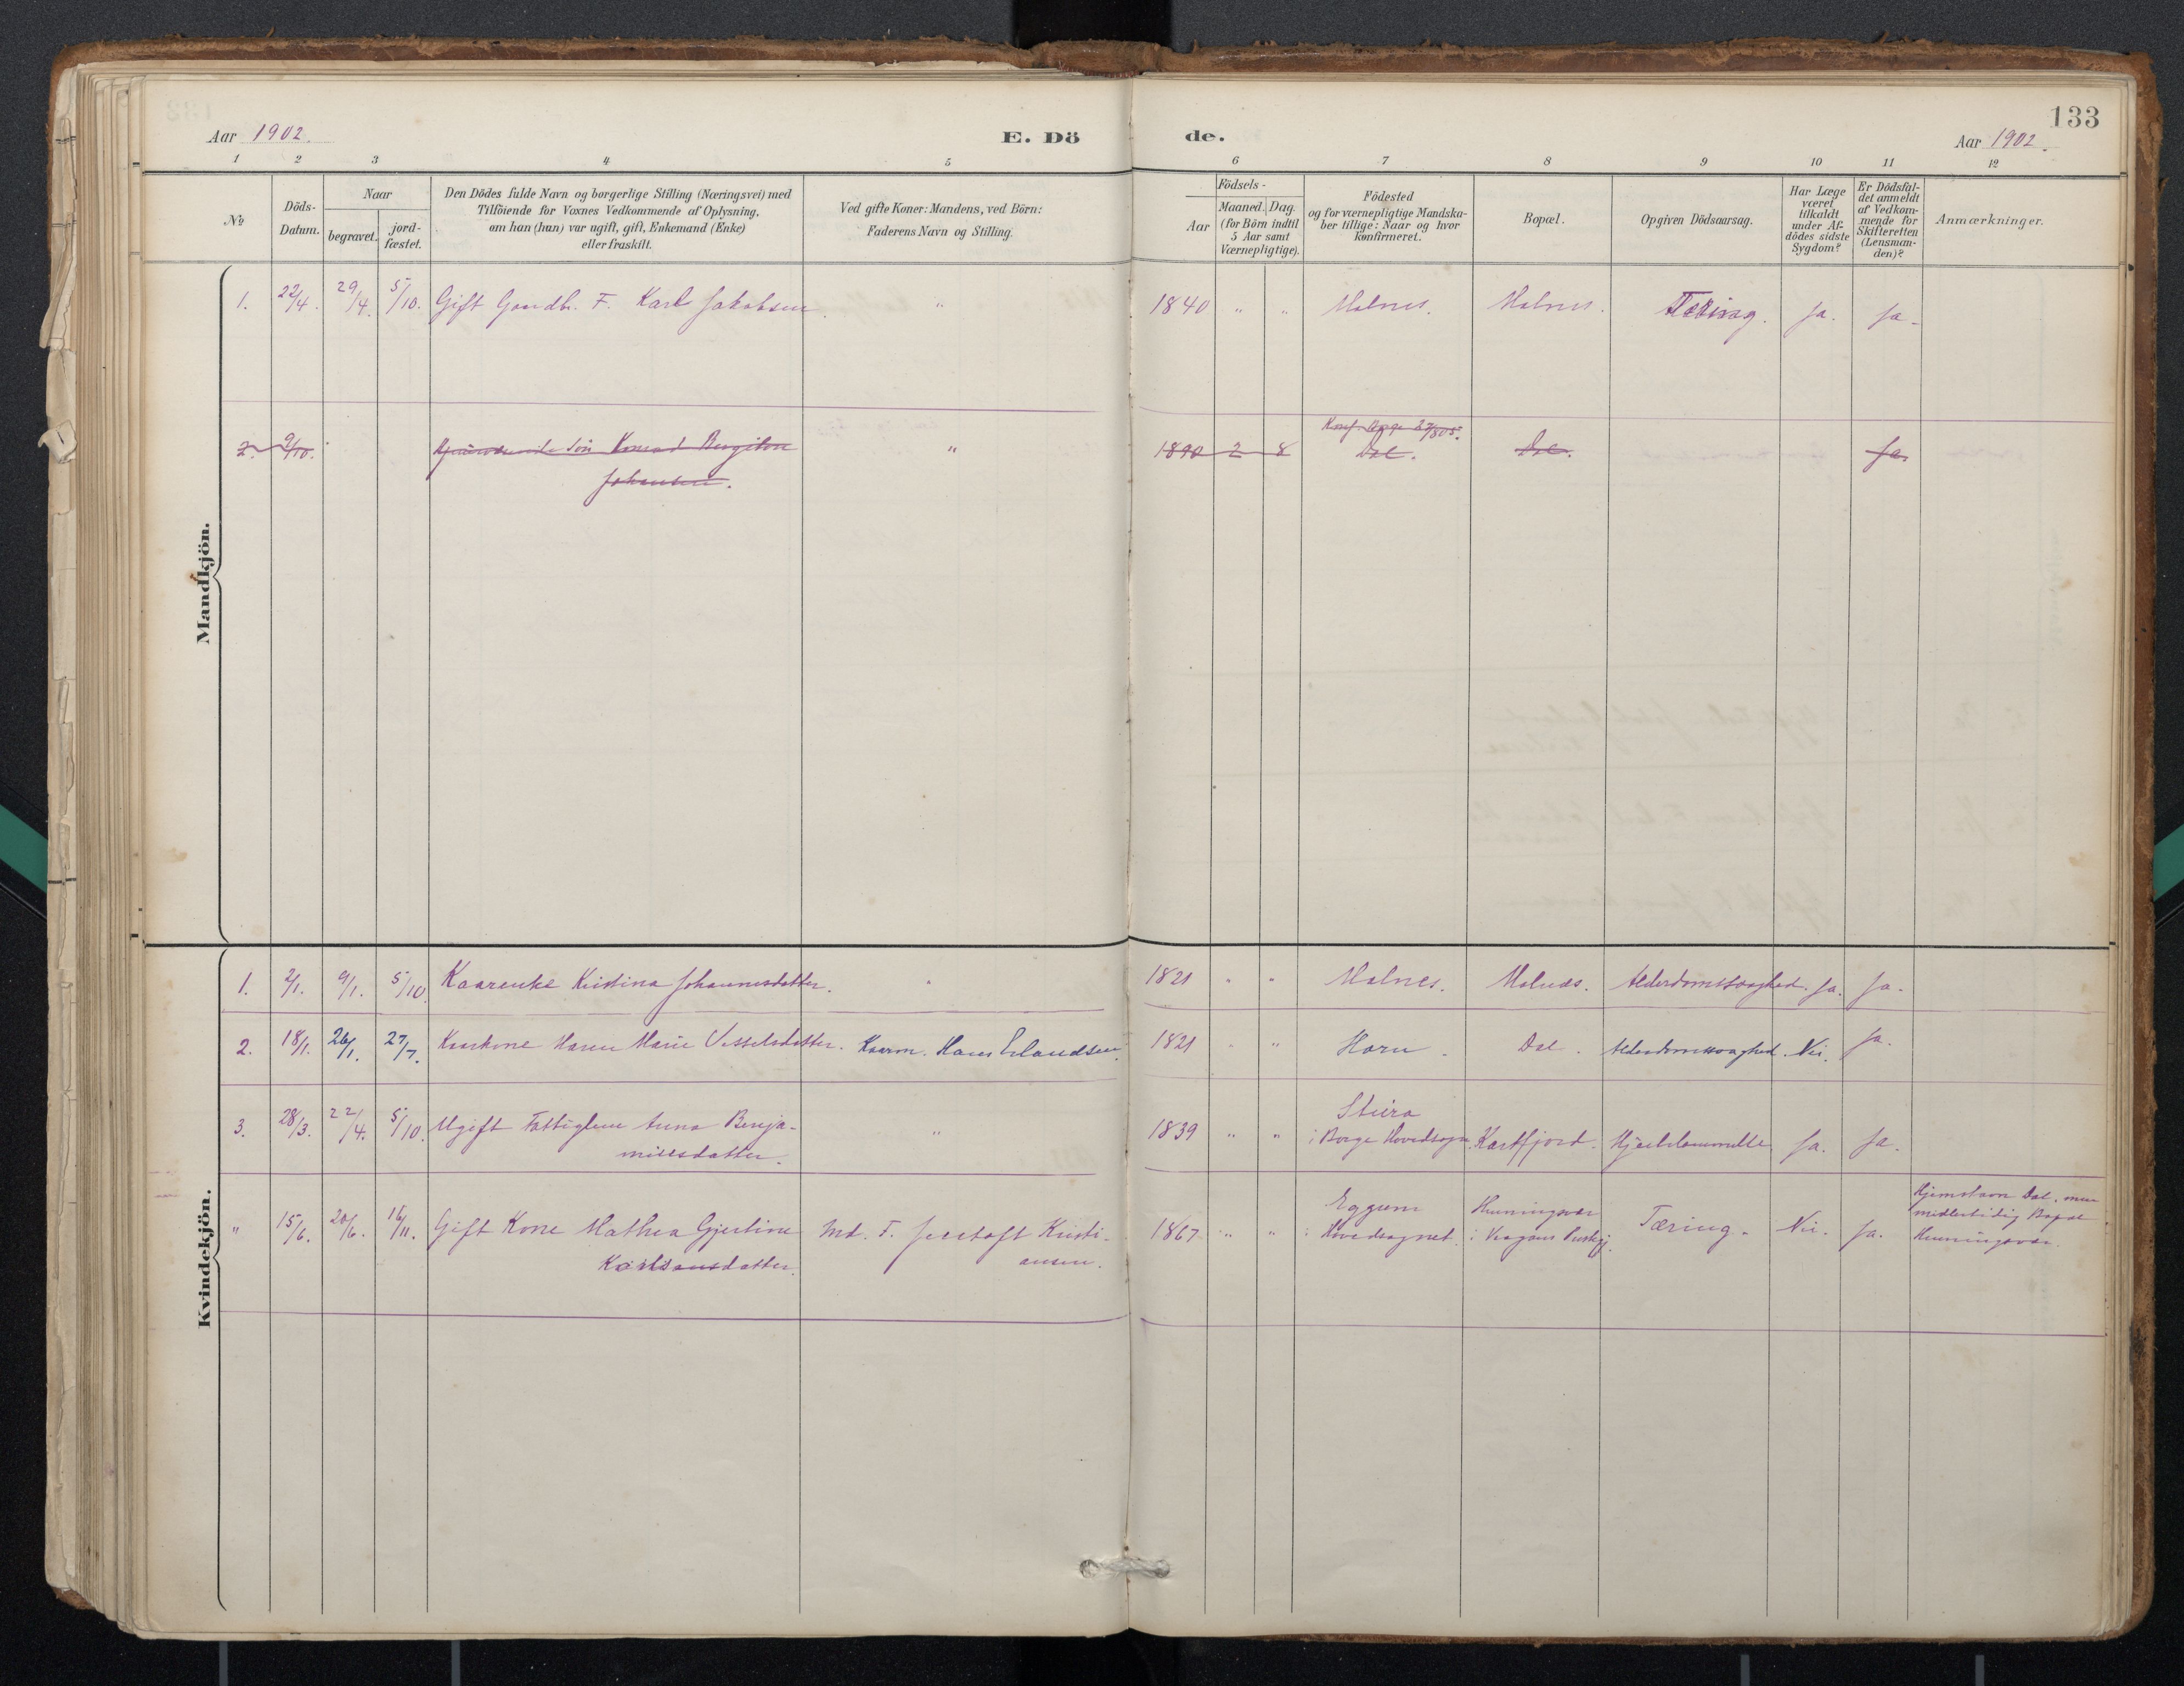 133
Aar 1902.
E. Dö
de.
Aar 1902.
1 2 3 4 5 6 7 8 9 10 11 12
№
Döds-
Datum.
Naar
begravet.
jord-
fæstet.
Den Dödes fulde Navn og borgerlige Stilling (Næringsvei) med
Tilföiende for Voxnes Vedkommende af Oplysning,
om han (hun) var ugift, gift, Enkemand (Enke)
eller fraskilt.
Ved gifte Koner: Mandens, ved Börn:
Faderens Navn og Stilling.
Födsels-
Aar
Maaned. Dag.
(for Börn indtil
5 Aar samt
Værnepligtige).
Födested
og for værnepligtige Mandska-
ber tillige: Naar og hvor
konfirmeret.
Bopæl.
Opgiven Dödsaarsag.
Har Læge
været
tilkaldt
under Af-
dödes sidste
Sygdom?
Er Dödsfal-
det anmeldt
af Vedkom-
mende for
Skifteretten
(Lensman-
den)?
Anmærkninger.
Mandkjön.
1. 22/4. 29/4. 5/10. Gift Gaardbr. F. Karl Jakobsen. " 1840 " " Molnes. Molnes. Tæring. Ja. Ja.
2. 9/10. Sön Konrad Bergiton " 1890 2 8 Dal. Dal. Ja.
Johansen.
Kvindekjön.
1. 2/1. 9/1. 5/10. Kaarenke Kristina Johannesdatter. " 1821 " " Molnes. Molnes. Alderdomssvaghed. Ja. Ja.
2. 18/1. 26/1. 27/7. Kaarkone Maren Marie Vesselsdatter. Kaarm. Hans Erlandsen. 1821 " " Horn. Dal. Alderdomssvaghed. Nei. Ja.
3. 28/3. 22/4. 5/10. Ugift Fattiglem Anna Benja-
minsdatter. " 1839 " " Stüra
i Borge Hovedsogn. Kartfjord. Hjertelammelse Ja. Ja.
" 15/6. 20/6. 16/11. Gift Kone Mathea Gjertine
Karlsdatter. Md. F. Jertoft Kristi-
ansen. 1867 " " Eggum
i Hovedsognet. Henningsvær
i Vaagans Prestgj. Tæring. Nei. Ja. Hjemstavn Dal, men
midlertidig Bopæl
Henningsvær.